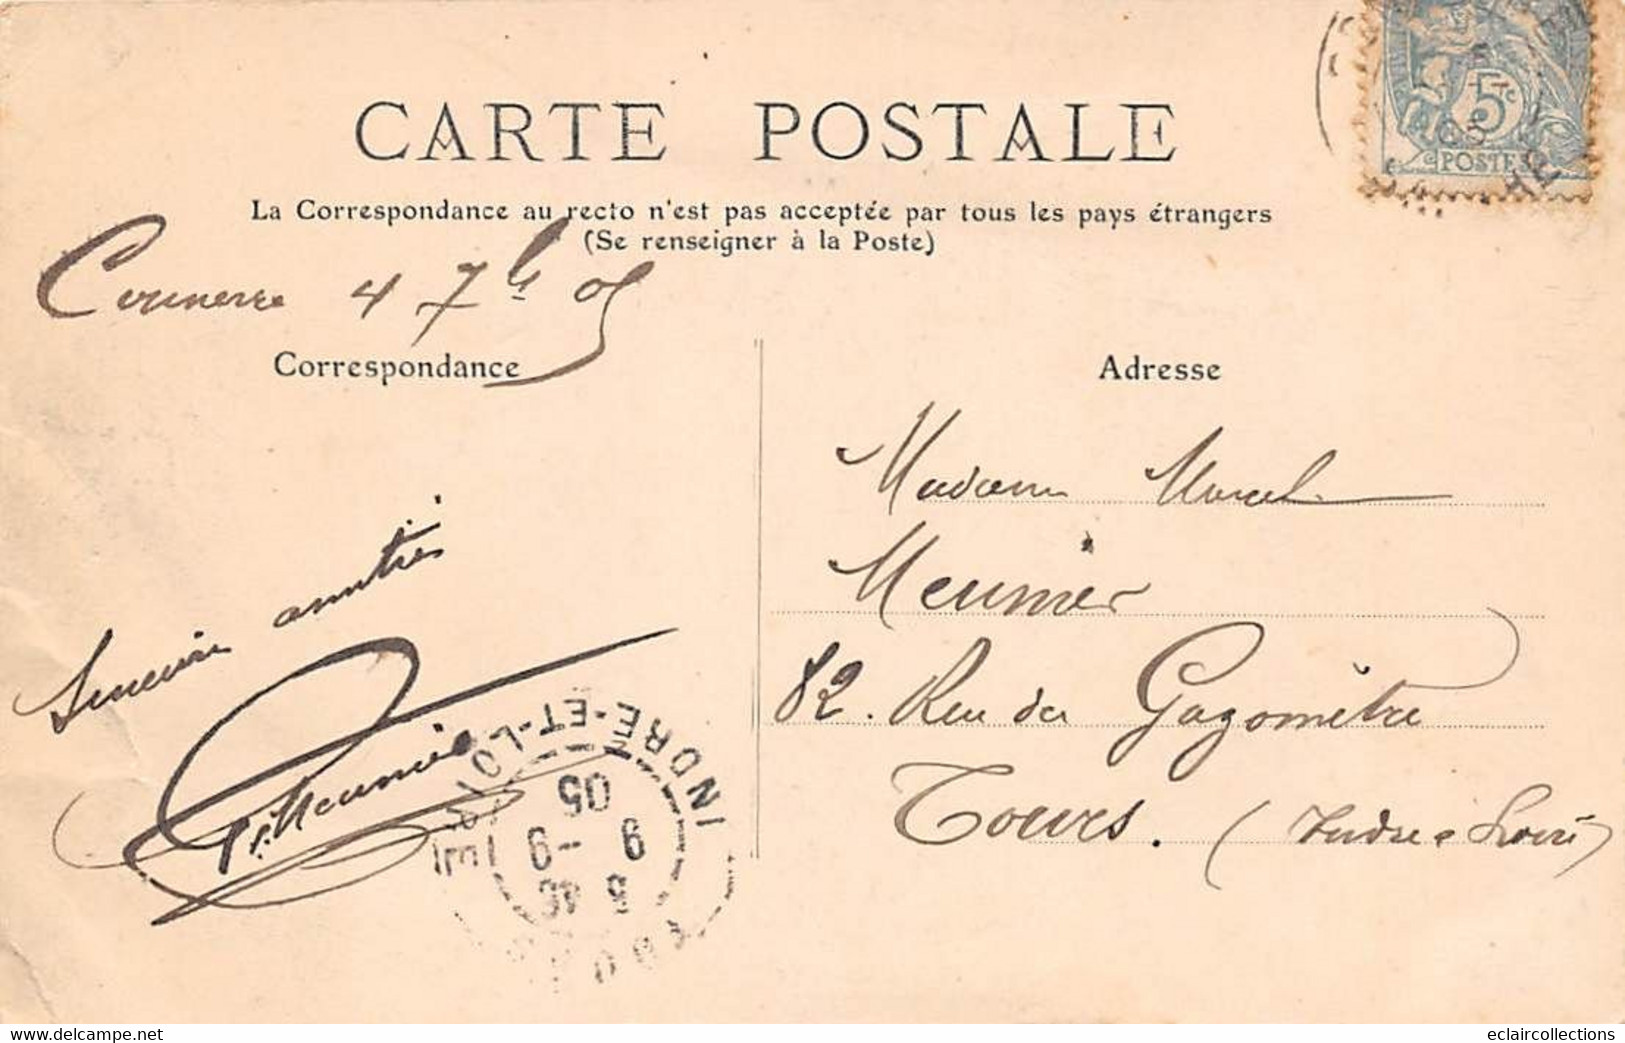 CARTE POSTALE
La Correspondance au recto n'est pas acceptée par tous les pays étrangers
(Se renseigner à la Poste)
4 7bre 05
Correspondance
Adresse
5c
POSTES
Madame Marcel
Meunier
82. Rue du Gazomètre
Tours. (Indre & Loire)
amitiés
Meunier
INDRE-ET-LOIRE
05
9 - 9
eclaircollections